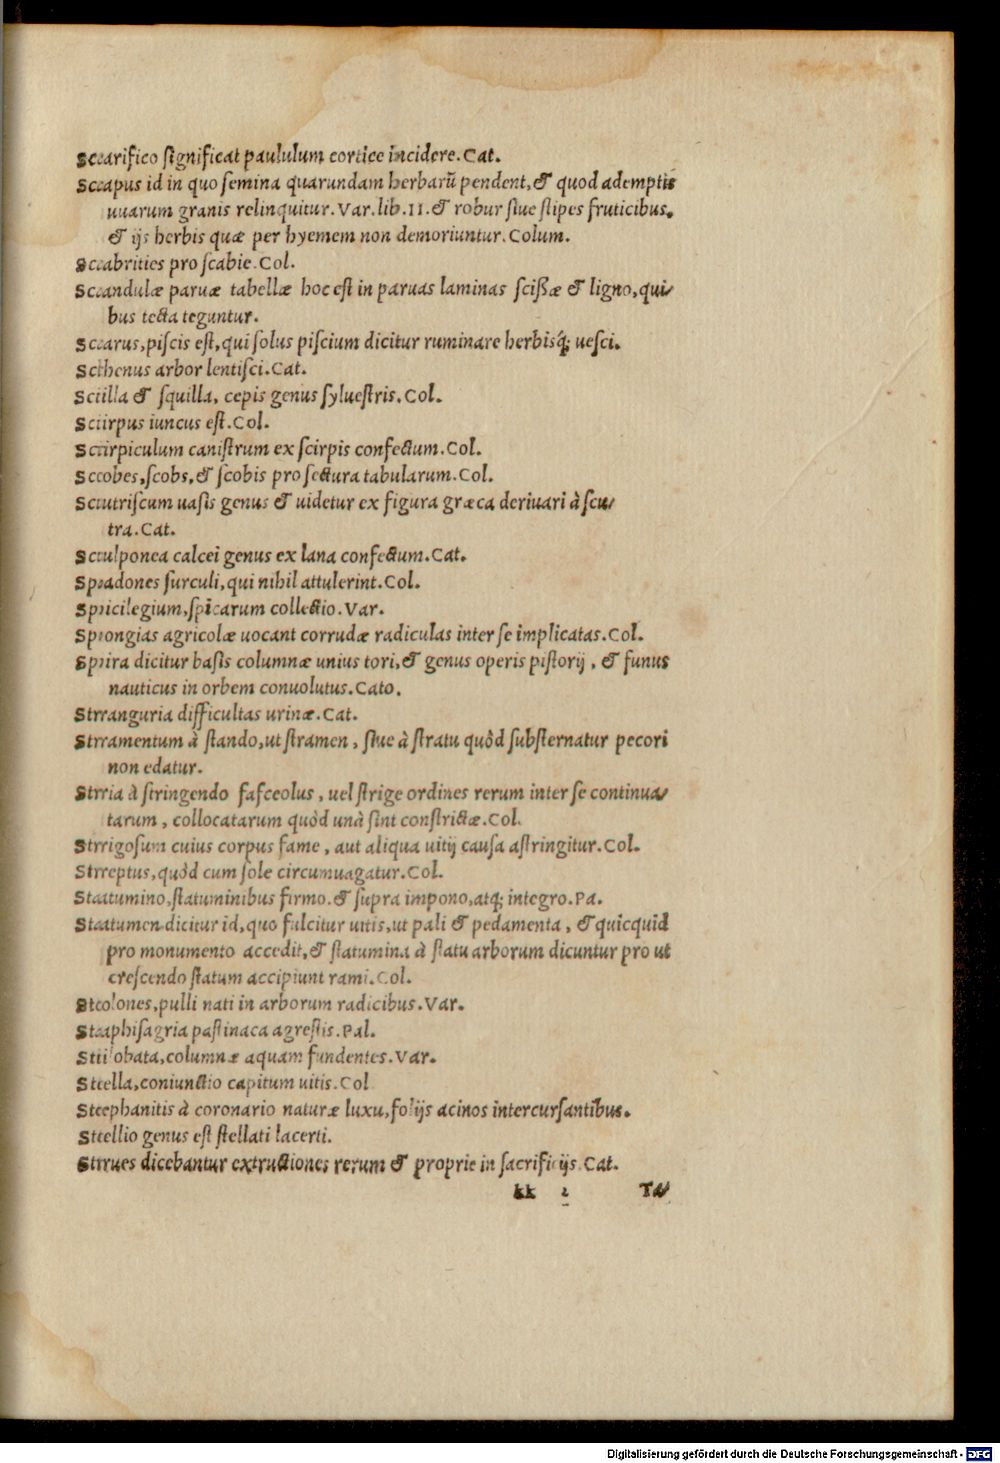 Scarifico ſignificat paululum cortice incidere.Cat.
Scapus id in quo ſemina quarundam herbarũ pendent,& quod ademptis
uuarum granis relinquitur.Var.lib.II.& robur ſiue ſtipes fruticibus.
& ijs herbis quæ per hyemem non demoriuntur.Colum.
Scabrities pro ſcabie.Col.
Scandulæ paruæ tabellæ hoc eſt in paruas laminas ſciſſæ & ligno,qui/
bus tecta teguntur.
Scarus,piſcis eſt,qui ſolus piſcium dicitur ruminare herbisq́; ueſci.
Schenus arbor lentiſci.Cat.
Scilla & ſquilla, cepis genus ſylueſtris.Col.
Scirpus iuncus eſt.Col.
Scirpiculum caniſtrum ex ſcirpis confectum.Col.
Scobes,ſcobs,& ſcobis pro ſectura tabularum.Col.
Scutriſcum uaſis genus & uidetur ex figura græca deriuari à ſcu/
tra.Cat.
Sculponea calcei genus ex lana confectum.Cat.
Spadones ſurculi,qui nihil attulerint.Col.
Spicilegium,ſpicarum collectio.Var.
Spongias agricolæ uocant corrudæ radiculas inter ſe implicatas.Col.
Spira dicitur baſis columnæ unius tori,& genus operis piſtorij , & funus
nauticus in orbem conuolutus.Cato.
Stranguria difficultas urinæ.Cat.
Stramentum à ſtando,ut ſtramen , ſiue à ſtratu quòd ſubſternatur pecori
non edatur.
Stria à ſtringendo faſceolus , uel ſtrige ordines rerum inter ſe continua/
tarum , collocatarum quòd unà ſint conſtrictæ.Col.
Strigoſum cuius corpus fame , aut aliqua uitij cauſa aſtringitur.Col.
Streptus,quòd cum ſole circumuagatur.Col.
Statumino,ſtatuminibus firmo.& ſupra impono,atq; integro.Pa.
Statumen dicitur id,quo fulcitur uitis,ut pali & pedamenta , & quicquid
pro monumento accedit,& ſtatumina à ſtatu arborum dicuntur pro ut
creſcendo ſtatum accipiunt rami.Col.
Stolones,pulli nati in arborum radicibus.Var.
Staphiſagria paſtinaca agreſtis.Pal.
Stilobata,columnæ aquam fundentes.Var.
Stella,coniunctio capitum uitis.Col
Stephanitis à coronario naturæ luxu,folijs acinos intercurſantibus.
Stellio genus eſt ſtellati lacerti.
Strues dicebantur extructiones rerum & proprie in ſacrificijs.Cat.
kk 2 Ta/
Digitalisierung gefördert durch die Deutsche Forschungsgemeinschaft - DFG